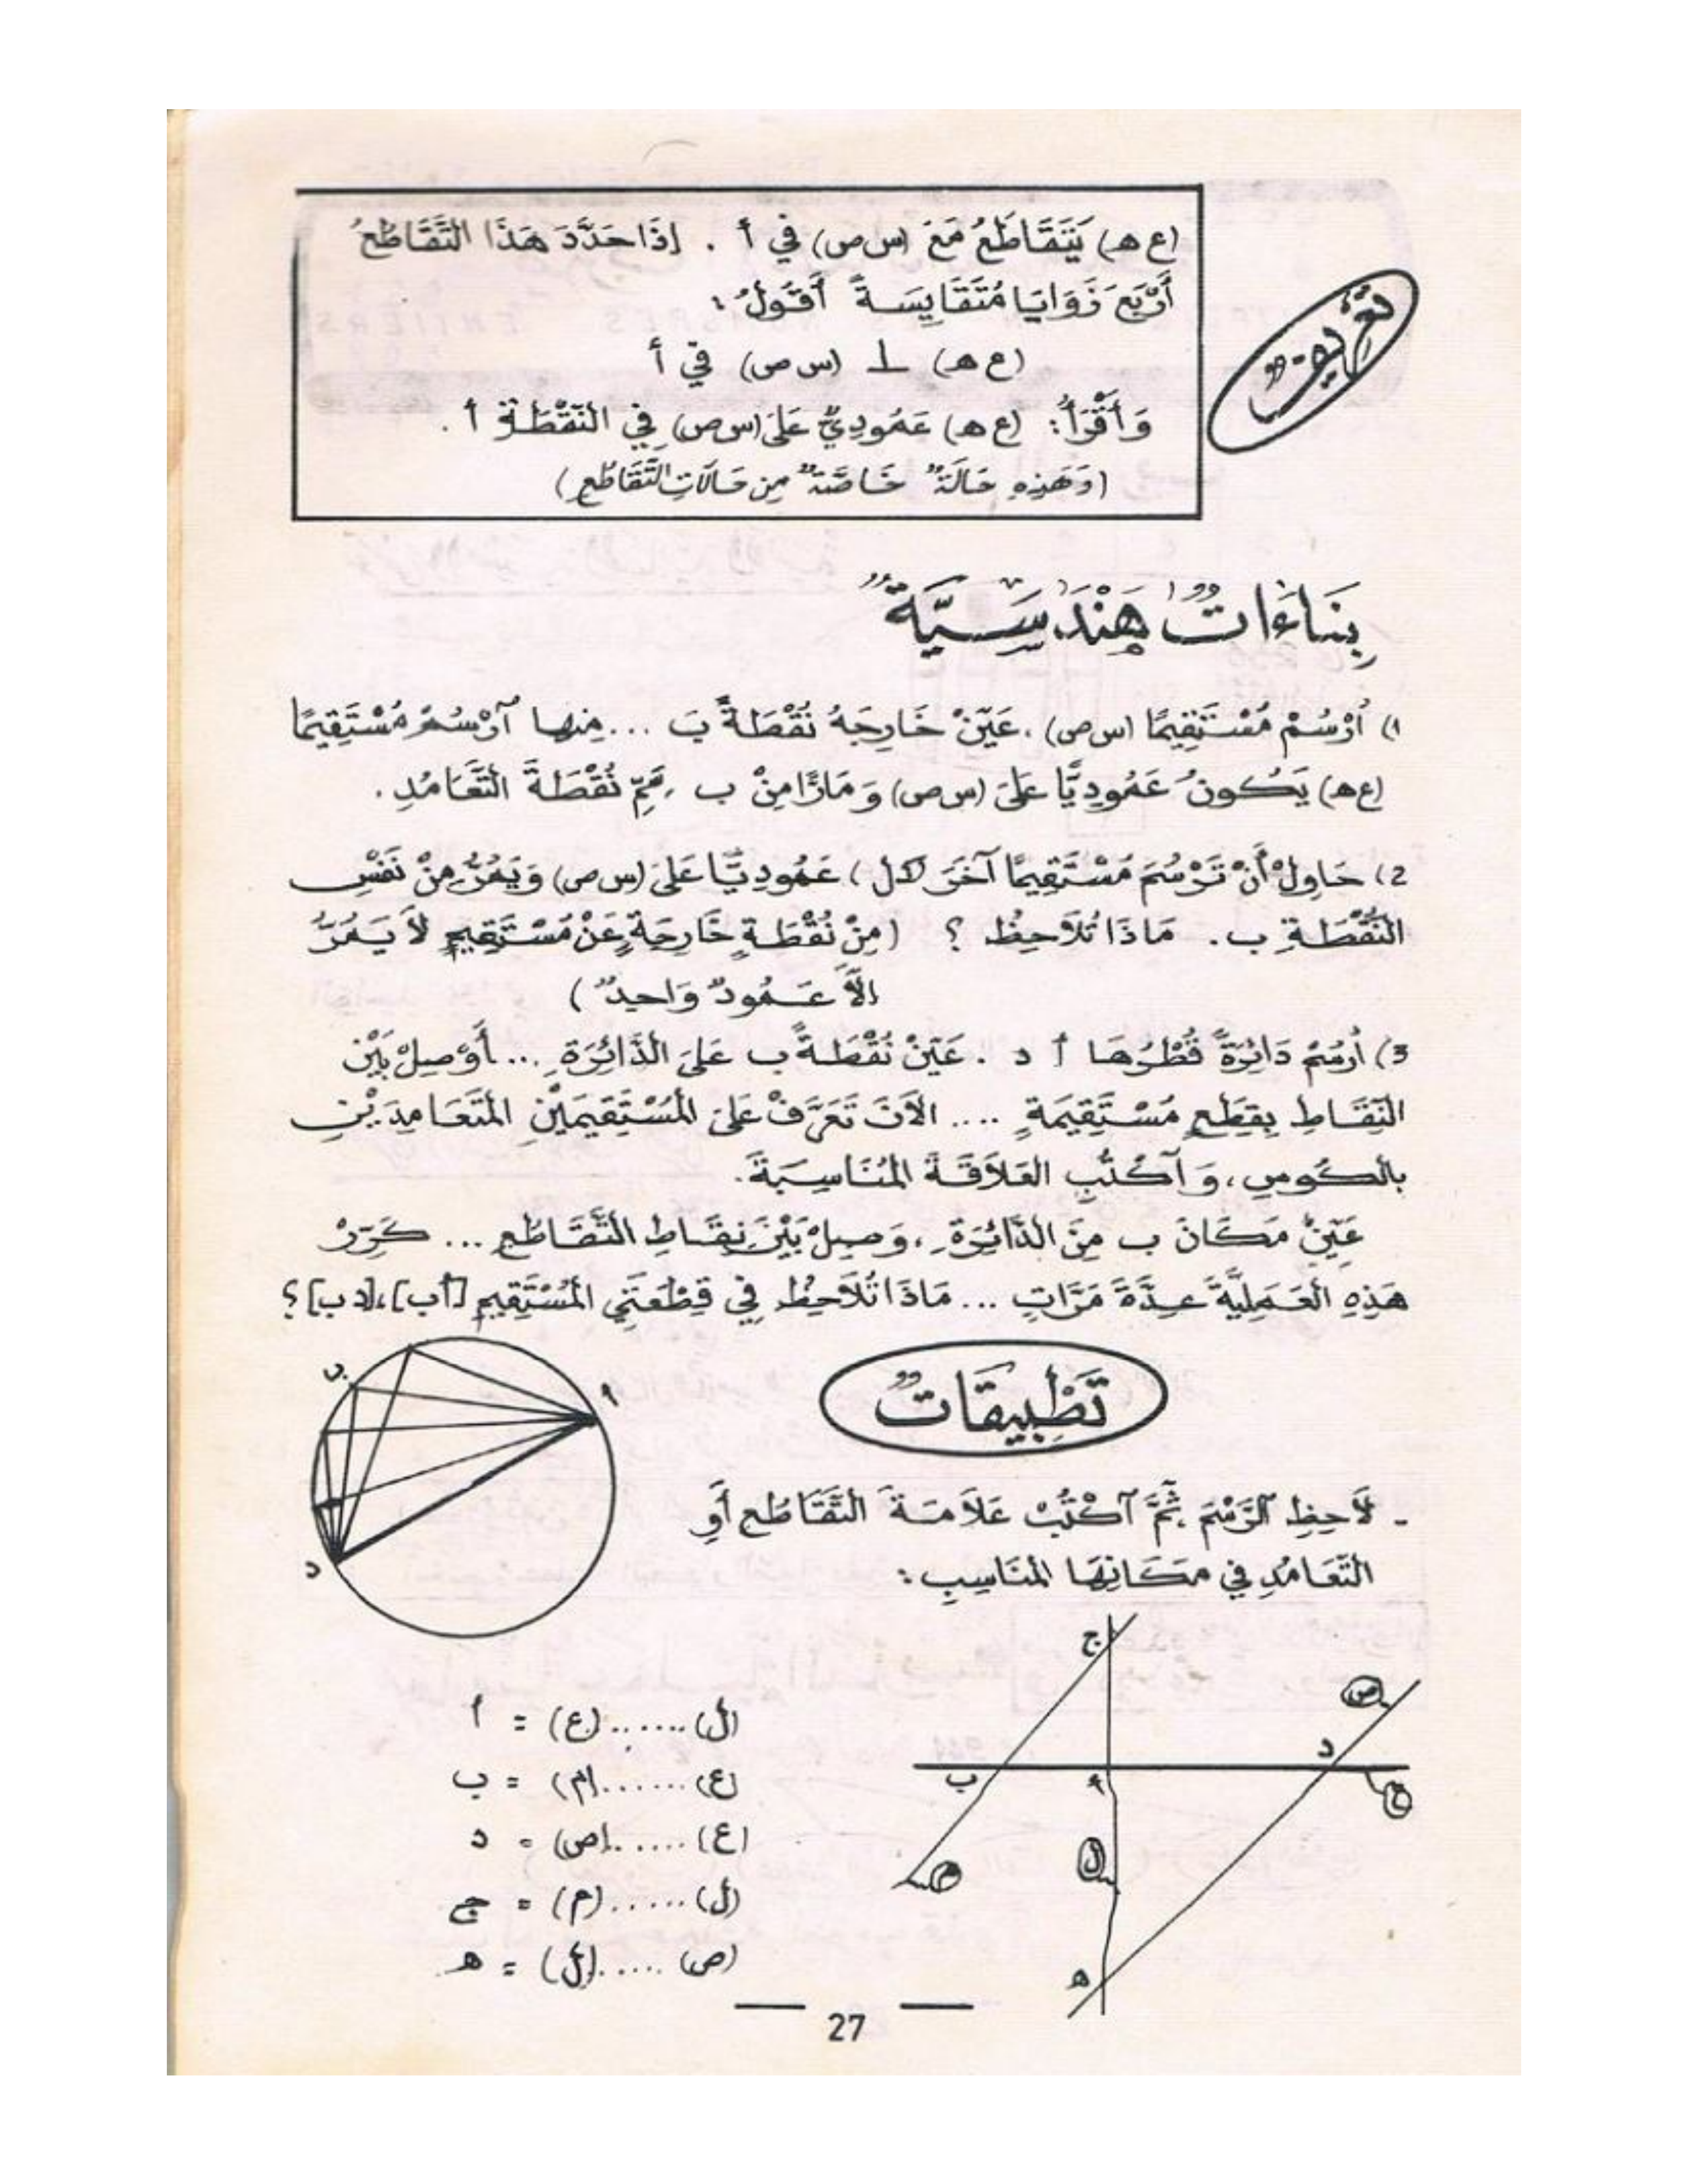 تَعْرِيفٌ
(ع هـ) يَتَقَاطَعُ مَعَ (س ص) في أ . إِذَا حَدَّدَ هَذَا التَّقَاطُعُ
أَرْبَعَ زَوَايَا مُتَقَايِسَةً أَقُولُ :
(ع هـ) ⊥ (س ص) في أ
وَأَقْرَأُ : (ع هـ) عَمُودِيٌّ عَلَى (س ص) فِي النُّقْطَةِ أ .
(وَهَذِهِ حَالَةٌ خَاصَّةٌ مِن حَالَاتِ التَّقَاطُعِ)
بِنَاءَاتٌ هَنْدَسِيَّةٌ
1) أُرْسُمْ مُسْتَقِيمًا (س ص) ، عَيِّنْ خَارِجَهُ نُقْطَةً بَ ... مِنها آرْسُمْ مُسْتَقِيمًا
(ع هـ) يَكُونُ عَمُودِيًّا عَلَى (س ص) وَمَارًّا مِنْ ب ، سَمِّ نُقْطَةَ التَّعَامُدِ .
2) حَاوِلْ أَنْ تَرْسُمَ مُسْتَقِيمًا آخَرَ (ك ل) عَمُودِيًّا عَلَى (س ص) وَيَمُرُّ مِنْ نَفْسِ
النُّقْطَةِ ب . مَاذَا تُلَاحِظُ ؟ (مِنْ نُقْطَةٍ خَارِجَةٍ عَنْ مُسْتَقِيمٍ لاَ يَمُرُّ
إِلاَّ عَمُودٌ وَاحِدٌ)
3) أُرْسُمْ دَائِرَةً قُطْرُهَا أ د . عَيِّنْ نُقْطَةً ب عَلَى الدَّائِرَةِ ... أَوْصِلْ بَيْن
النِّقَاطِ بِقِطَعٍ مُسْتَقِيمَةٍ .... الآنَ تَعَرَّفْ عَلَى المُسْتَقِيمَيْنِ المُتَعَامِدَيْنِ
بِالكُوسِ ، وَآكْتُبِ العَلاَقَةَ المُنَاسِبَةَ .
عَيِّنْ مَكَانَ ب مِنَ الدَّائِرَةِ ، وَصِلْ بَيْنَ نِقَاطِ التَّقَاطُعِ ... كَرِّرْ
هَذِهِ العَمَلِيَّةَ عِدَّةَ مَرَّاتٍ ... مَاذَا تُلاَحِظُ فِي قِطْعَتَيِ المُسْتَقِيمِ [أ ب] ، [د ب] ؟
ب
أ
د
تَطْبِيقَاتٌ
- لاَحِظِ الرَّسْمَ ثُمَّ آكْتُبْ عَلاَمَةَ التَّقَاطُعِ أَوِ
التَّعَامُدِ فِي مَكَانِهَا المُنَاسِبِ :
ج
ص
د
ب
أ
ع
ل
م
هـ
(ل) ...... (ع) = أ
(ع) ...... (م) = ب
(ع) ...... (ص) = د
(ل) ...... (م) = ج
(ص) ...... (ل) = هـ
27